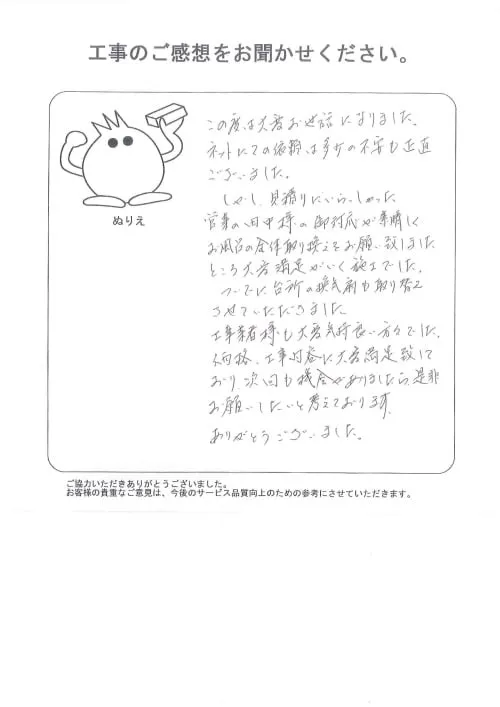 工事のご感想をお聞かせください。
ぬりえ
この度は大変お世話になりました。
ネットにての依頼は多少の不安も正直
ございました。
しかし、見積りにいらしゃった
営業の田中様の御対応が素晴しく
お風呂の全体取り換えをお願い致しました
ところ大変満足がいく施工でした。
ついでに台所の換気扇も取り替え
させていただきました。
工事業者様も大変気持良い方々でした。
価格、工事内容に大変満足致して
おり、次回も機会がありましたら、是非
お願いしたいと考えております。
ありがとうございました。
ご協力いただきありがとうございました。
お客様の貴重なご意見は、今後のサービス品質向上のための参考にさせていただきます。